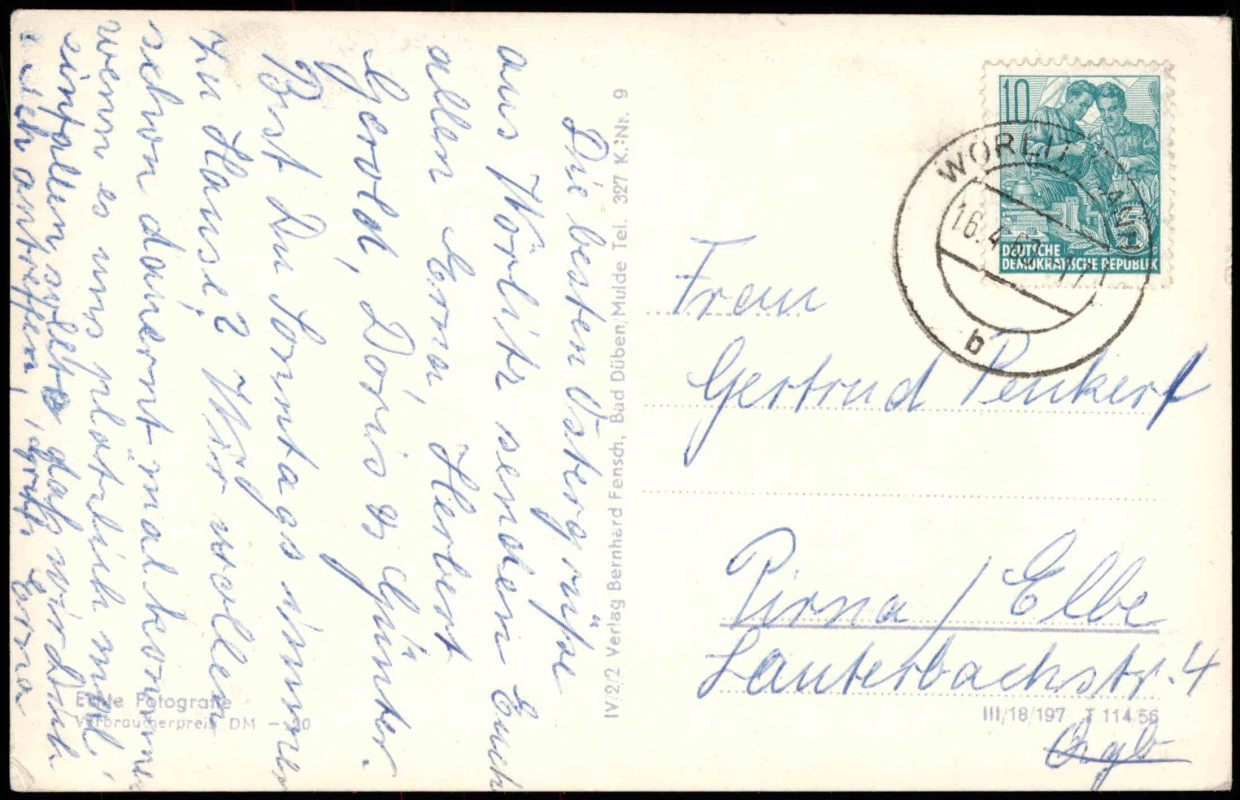 Die besten Ostergrüße
aus Wörlitz senden Euch
allen Erna, Herbert
Gerold, Doris & Günter.
Bist Du Sonntags immer
zu Hause? Wir wollen
schon dauernt mal kommen
wenn es uns plötzlich mal
einfallen sollte daß wir Dich
antreffen, Erna
IV/2/2 Verlag Bernhard Fensch, Bad Düben/Mulde Tel. 327 K.-Nr. 9
10
DEUTSCHE
DEMOKRATISCHE REPUBLIK
5
WÖRLITZ
16.4.
b
Frau
Gertrud Penkert
Pirna / Elbe
Lauterbachstr. 4
III/18/197 T 114/56
Echte Fotografie
Verbraucherpreis DM